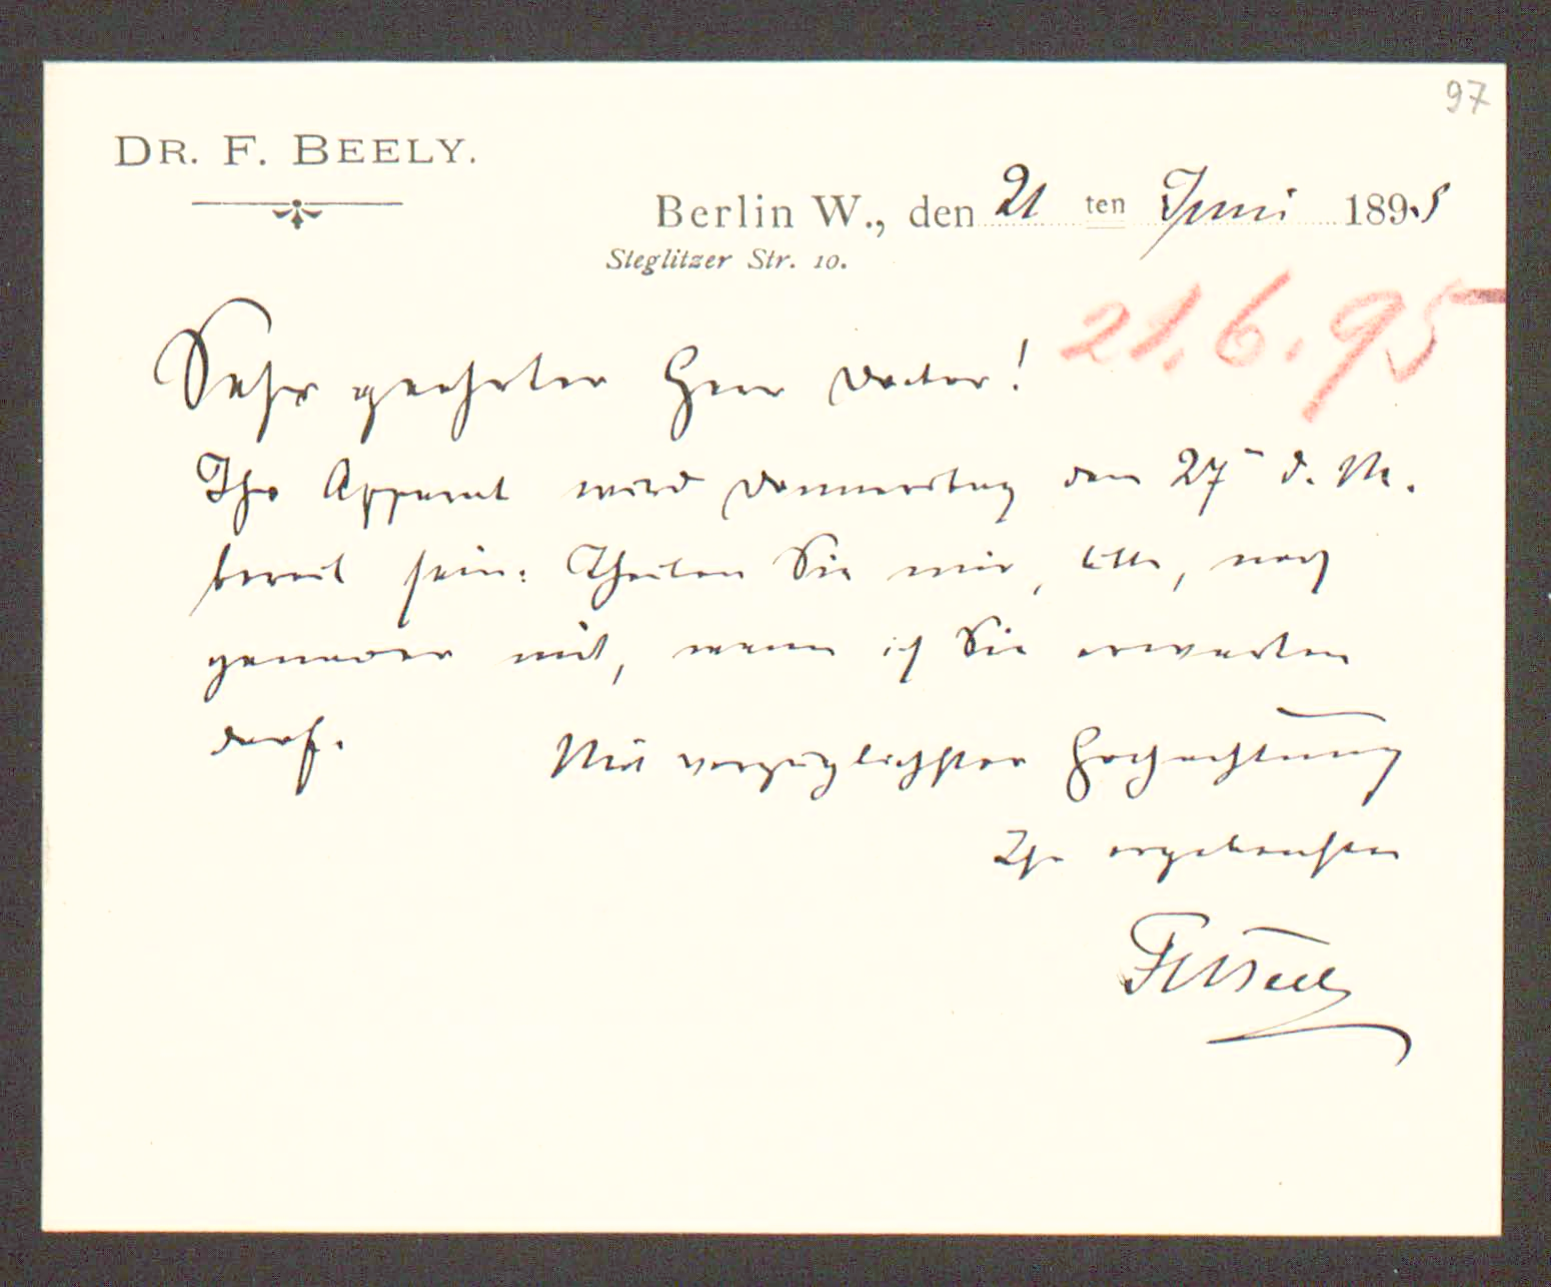 97
DR. F. BEELY.
Berlin W., den 21 ten Juni 1895
Steglitzer Str. 10.
21.6.95
Sehr geehrter Herr Doctor!
Ihr Apparat wird Donnerstag den 27 d. M.
bereit sein. Theilen Sie mir, bitte, noch
genauer mit, wann ich Sie erwarten
darf. Mit vorzüglichster Hochachtung
Ihr ergebenster
F Beely